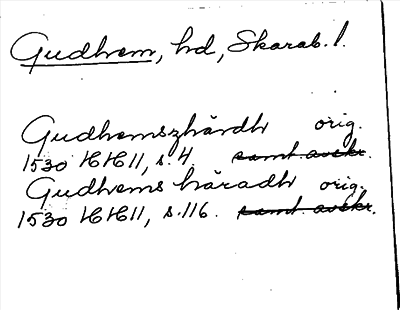 Gudhem, hd, Skarab. l.
Gudhemszhärdh orig.
1530 HH 11, s. 4. samt. avskr.
Gudhems häradh orig.
1530 HH 11, s. 116. samt. avskr.